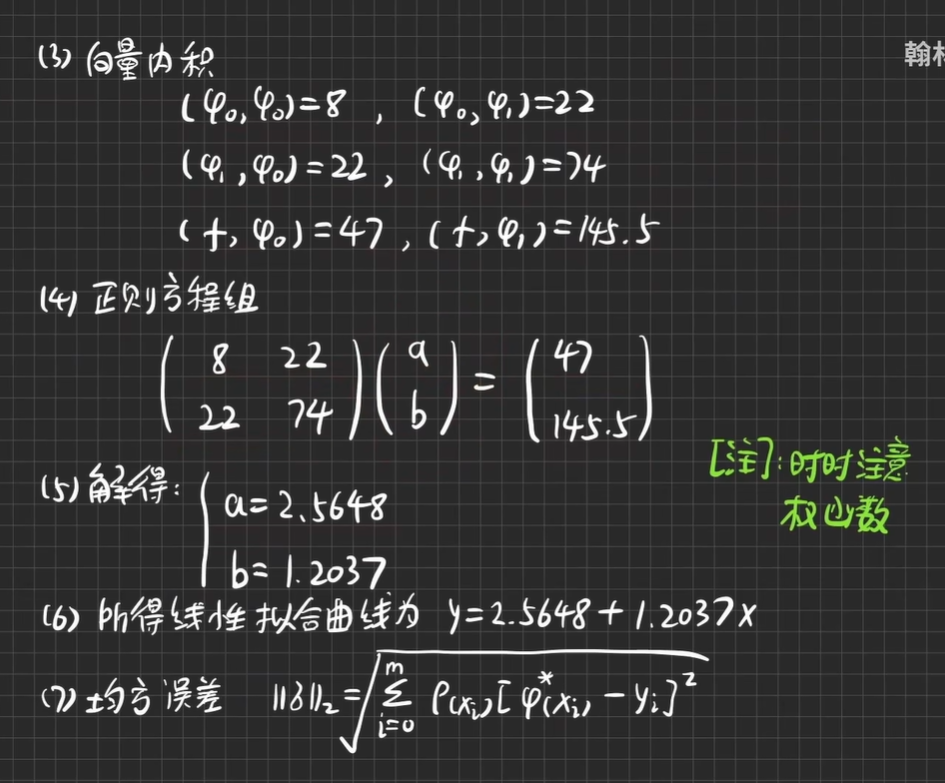 (3) 向量内积
翰林
(φ₀,φ₀)=8 , (φ₀,φ₁)=22
(φ₁,φ₀)=22, (φ₁,φ₁)=74
(f,φ₀)=47, (f,φ₁)=145.5
(4) 正则方程组
( 8 22 ) ( a ) = ( 47 )
( 22 74 ) ( b ) ( 145.5 )
[注]:时时注意
权函数
(5) 解得: { a=2.5648
b=1.2037
(6) 所得线性拟合曲线为 y=2.5648+1.2037x
(7) 均方误差 ||δ||₂=√∑ᵢ₌₀ᵐ ρ(xᵢ)[φ*(xᵢ)-yᵢ]²